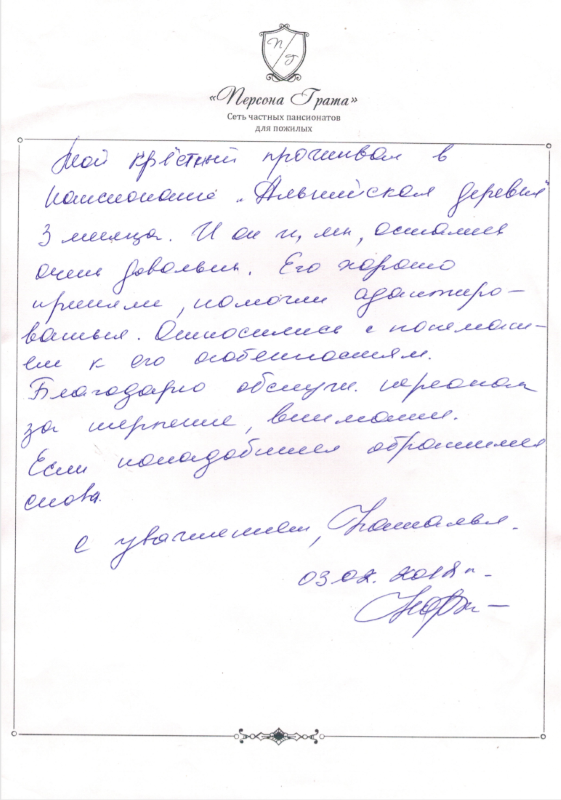 П
Г
«Персона Грата»
Сеть частных пансионатов
для пожилых
Мой крёстный проживал в
пансионате „Альпийская деревня"
3 месяца. И он и, мы, остались
очень довольны. Его хорошо
приняли, помогли адаптиро-
ваться. Относились с понимани-
ем к его особенностям.
Благодарю обслуж. персонал
за терпение, внимание.
Если понадобится обратимся
снова.
С уважением, Наталья.
03.02.2018г.